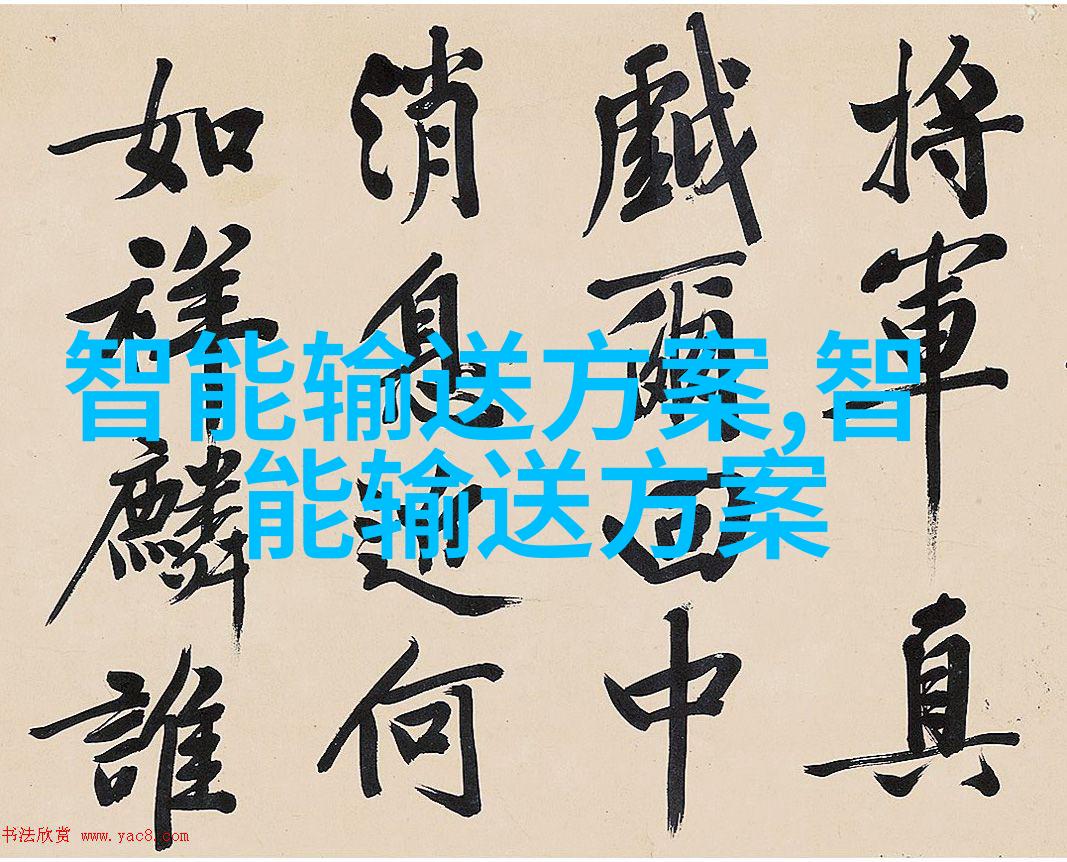 將軍真
戲爾回中
消息近何
如祥麟誰
智能输送方案,智
能输送方案
书法欣赏 www.yac8.com